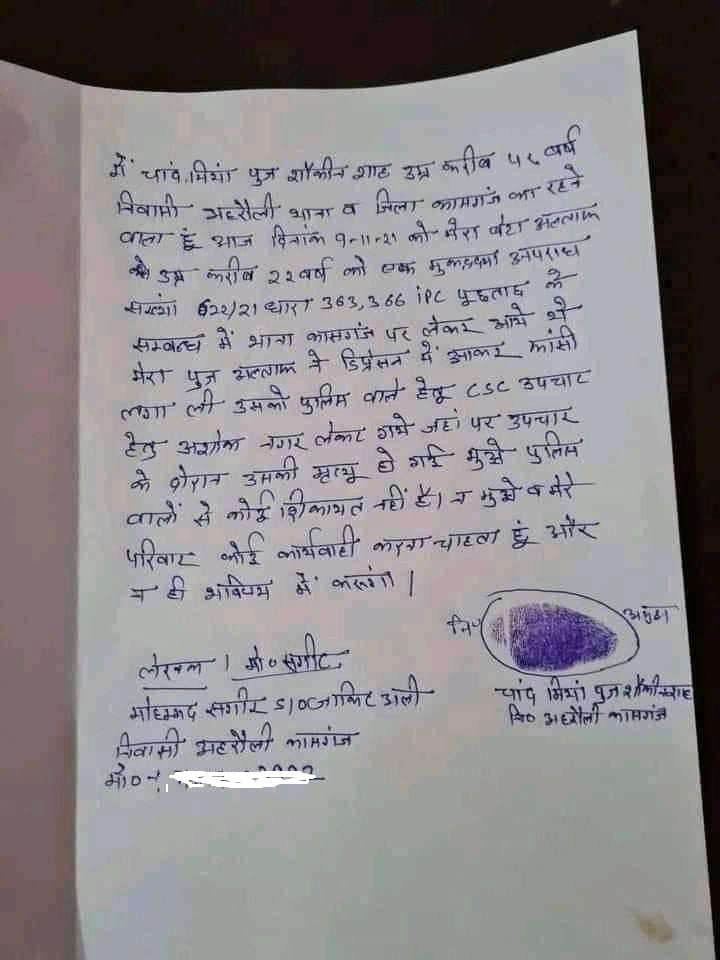 मैं चांद मियां पुत्र शौकीन शाह उम्र करीब ५८ वर्ष
निवासी अहरौली थाना व जिला कासगंज का रहने
वाला हूं आज दिनांक 9-11-21 को मेरा बेटा अल्ताफ
उम्र करीब २२ वर्ष को एक मुकदमा अपराध
संख्यां 622/21 धारा 363,366 iPC पूछताछ के
सम्बन्ध में थाना कासगंज पर लेकर आये थे
मेरा पुत्र अल्ताफ ने डिप्रेसन में आकर फांसी
लगा ली उसको पुलिस वाले हेतू CSC उपचार
हेतु अशोक नगर लेकर गये जहां पर उपचार
के दौरान उसकी मृत्यू हो गई मुझे पुलिस
वालों से कोई शिकायत नहीं है। न मुझे व मेरे
परिवार कोई कार्यवाही करना चाहता हूं और
न ही भविषय में करूंगा।
नि० अंगुठा
चांद मियां पुत्र शौकीन शाह
नि० अहरौली कासगंज
लेखक। मो० सगीर
मोहम्मद सगीर S/O जाकिर अली
निवासी अहरौली कासगंज
मो० न०